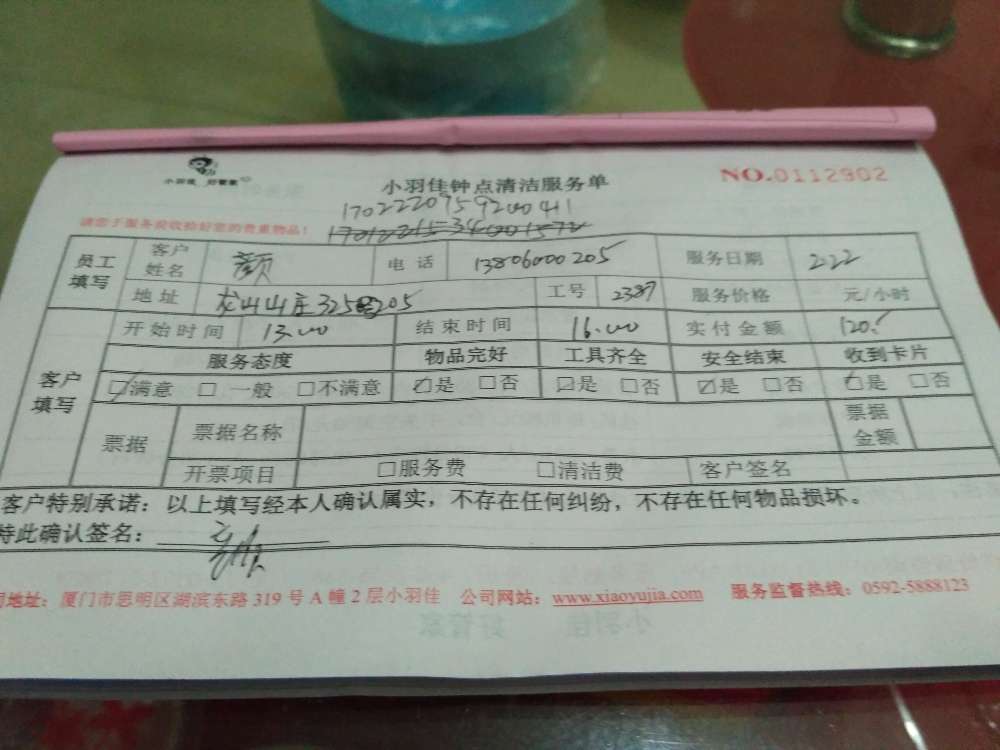 小羽佳 好管家
小羽佳钟点清洁服务单
NO.0112902
17022209759200411
请您于服务前收拾好您的贵重物品!
员工填写 客户姓名 颜 电话 13806000205 服务日期 2.22
地址 龙山山庄325 205 工号 2387 服务价格 元/小时
客户填写 开始时间 13.00 结束时间 16.00 实付金额 120.
服务态度 物品完好 工具齐全 安全结束 收到卡片
☑满意 □一般 □不满意 ☑是 □否 ☑是 □否 ☑是 □否 ☑是 □否
票据 票据名称 票据金额
开票项目 □服务费 □清洁费 客户签名
客户特别承诺:以上填写经本人确认属实,不存在任何纠纷,不存在任何物品损坏。
特此确认签名:
司地址:厦门市思明区湖滨东路319号A幢2层小羽佳 公司网站:www.xiaoyujia.com 服务监督热线:0592-5888123